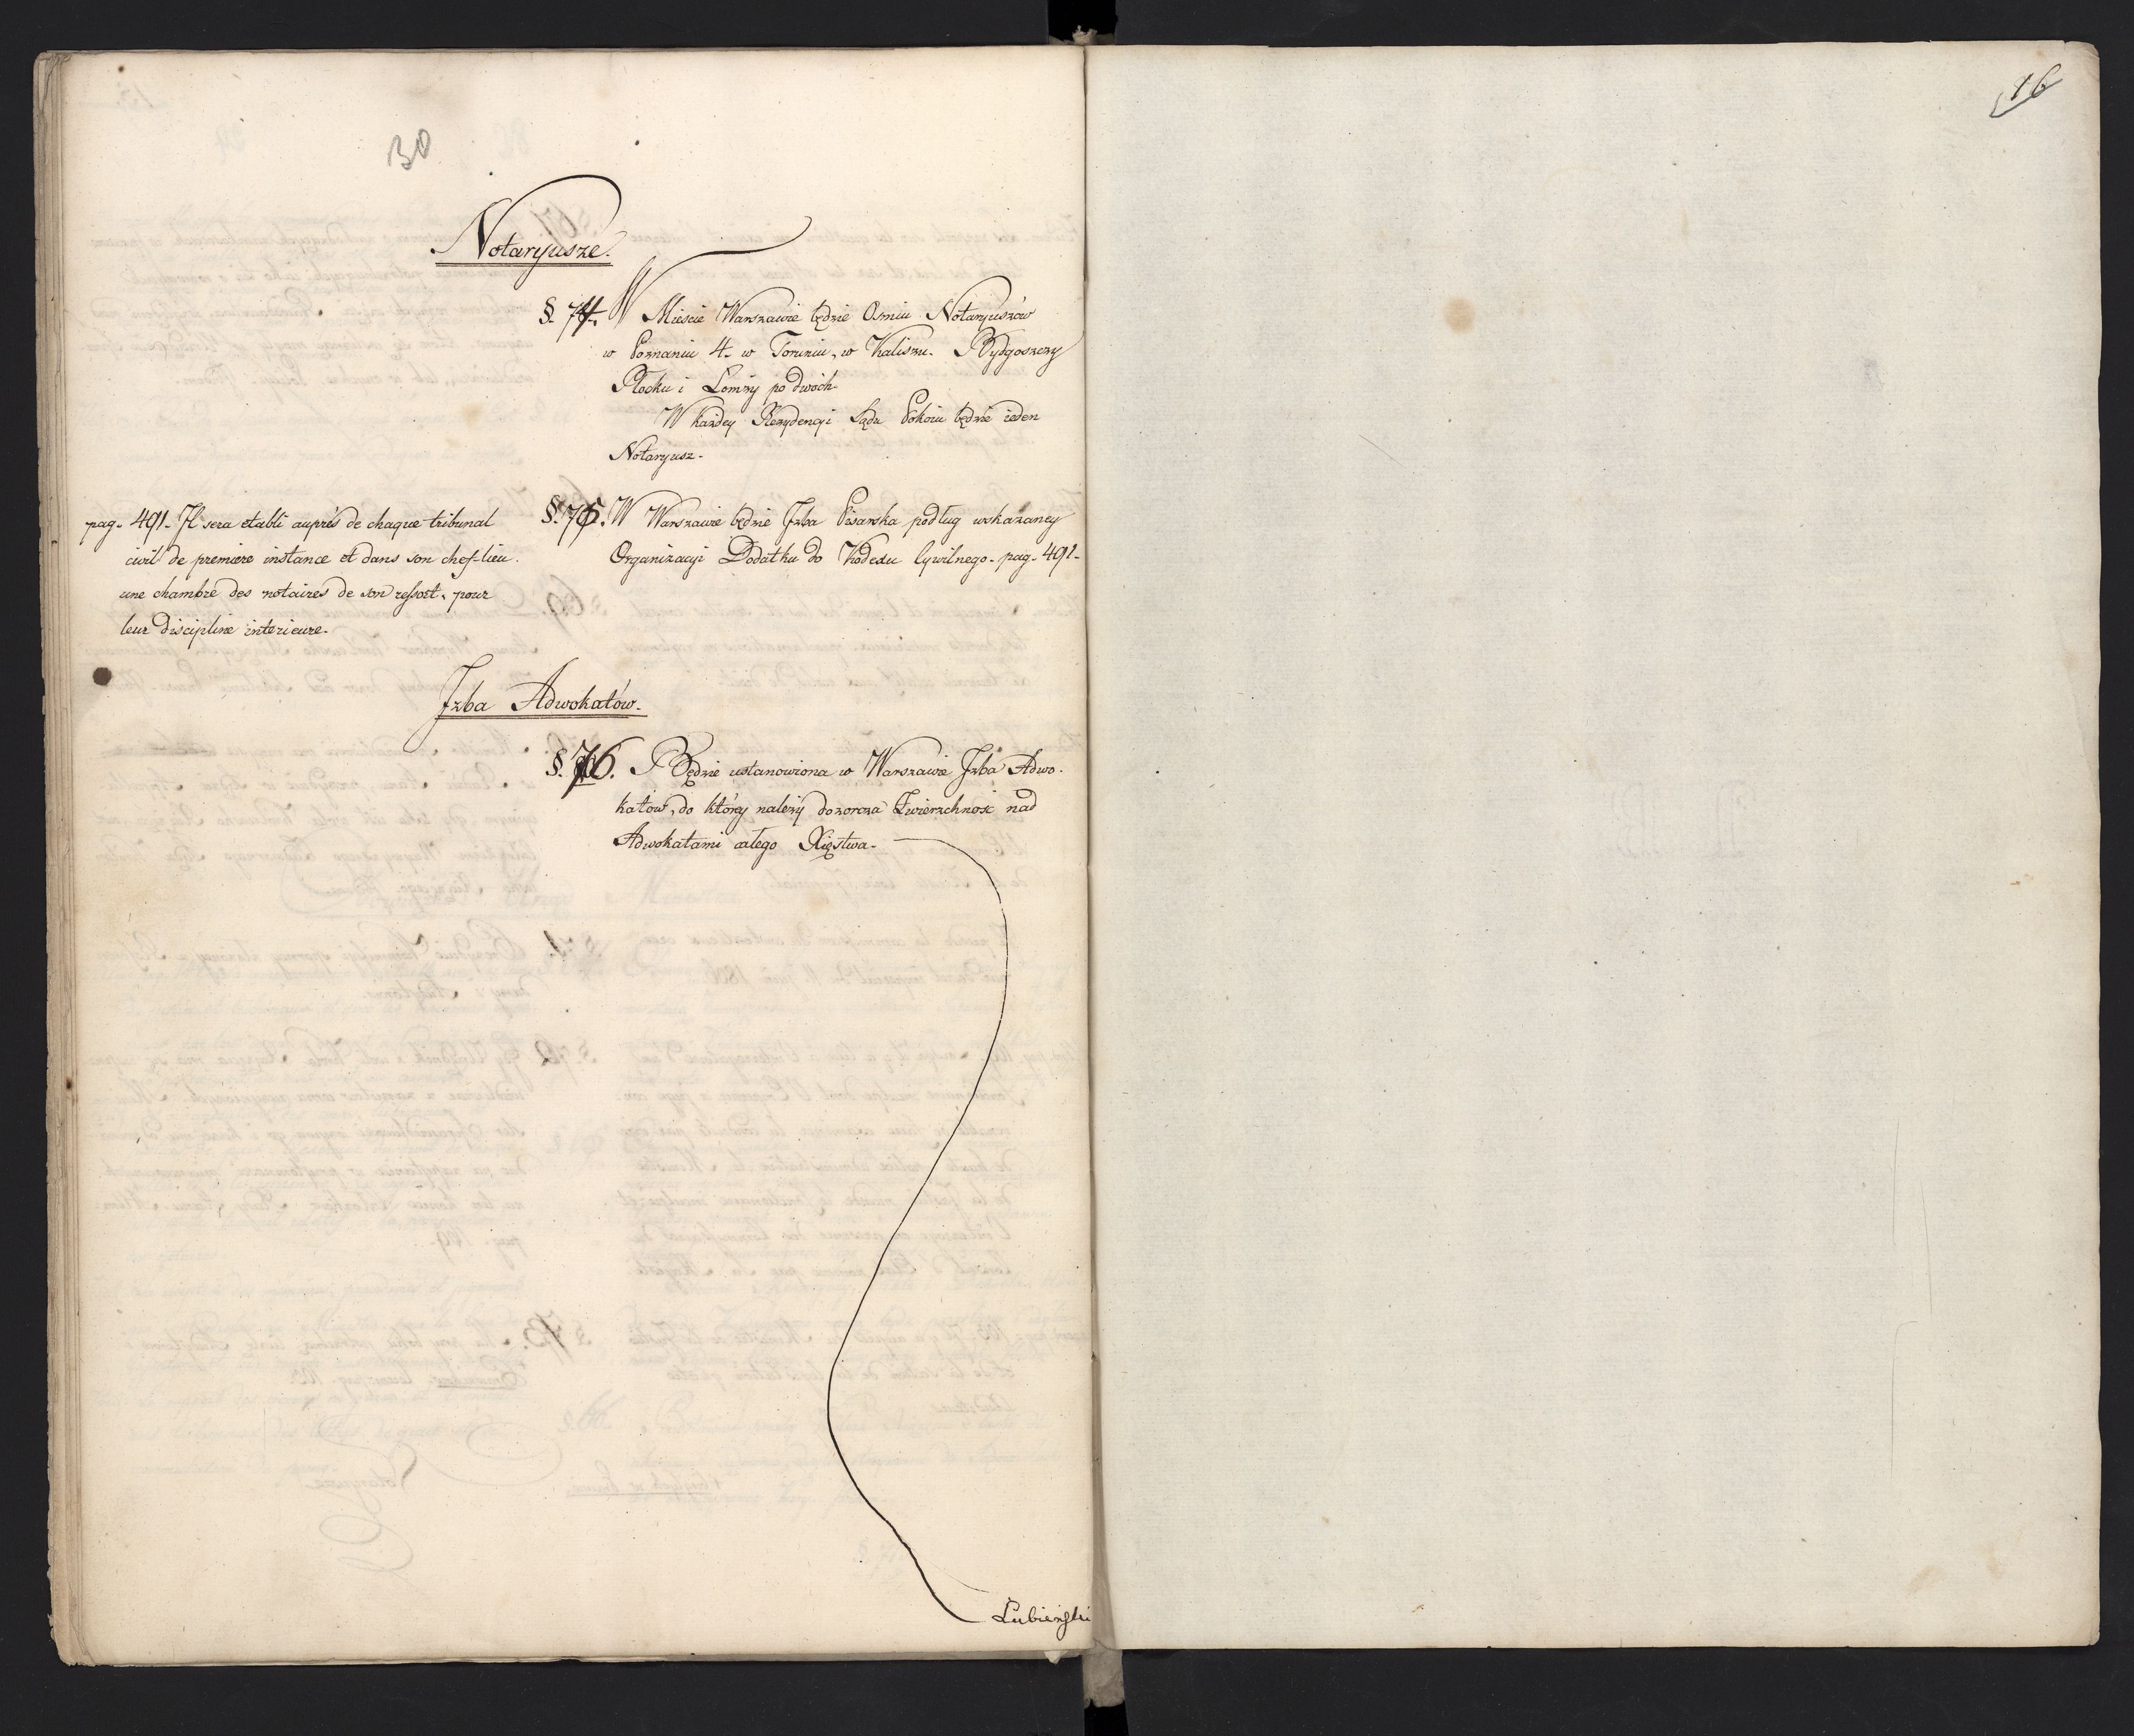 30
16
Notaryusze.
§. 74. W Mieście Warszawie będzie Osmiu Notaryuszów
w Poznaniu 4. w Toruniu, w Kaliszu. Bydgoszczy
Płocku i Łomży po dwóch.
W każdey Rezydencyi Sądu Pokoiu będzie ieden
Notaryusz.
§. 75. W Warszawie będzie Jzba Pisarska podług wskazaney
Organizacyi Dodatku do Kodexu Cywilnego. pag. 491.
pag. 491. Jl sera etabli auprés de chaque tribunal
civil de premiere instance et dans son chef-lieu.
une chambre des notaires de son ressort, pour
leur discipline interieure.
Jzba Adwokatów.
§. 76. Będzie ustanowiona w Warszawie Jzba Adwo-
katów, do który należy dozorcza Zwierzchnosc nad
Adwokatami całego Xięstwa.
Łubieński